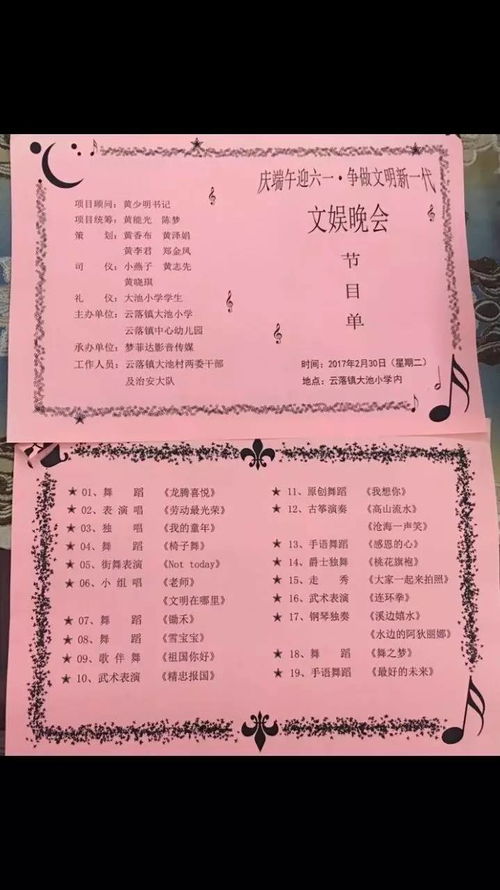 项目顾问：黄少明书记
项目统筹：黄能光 陈梦
策 划：黄香布 黄泽娟
黄李君 郑金凤
司 仪：小燕子 黄志先
黄晓琪
礼 仪：大池小学学生
主办单位：云落镇大池小学
云落镇中心幼儿园
承办单位：梦菲达影音传媒
工作人员：云落镇大池村两委干部
及治安大队
庆端午迎六一·争做文明新一代
文娱晚会
节
目
单
时间：2017年2月30日（星期二）
地点：云落镇大池小学内
★ 01、舞 蹈 《龙腾喜悦》
★ 02、表 演 唱 《劳动最光荣》
★ 03、独 唱 《我的童年》
★ 04、舞 蹈 《椅子舞》
★ 05、街舞表演 《Not today》
★ 06、小 组 唱 《老师》
《文明在哪里》
★ 07、舞 蹈 《锄禾》
★ 08、舞 蹈 《雪宝宝》
★ 09、歌 伴 舞 《祖国你好》
★ 10、武术表演 《精忠报国》
★ 11、原创舞蹈 《我想你》
★ 12、古筝演奏 《高山流水》
《沧海一声笑》
★ 13、手语舞蹈 《感恩的心》
★ 14、爵士独舞 《桃花旗袍》
★ 15、走 秀 《大家一起来拍照》
★ 16、武术表演 《连环拳》
★ 17、钢琴独奏 《溪边嬉水》
《水边的阿狄丽娜》
★ 18、舞 蹈 《舞之梦》
★ 19、手语舞蹈 《最好的未来》